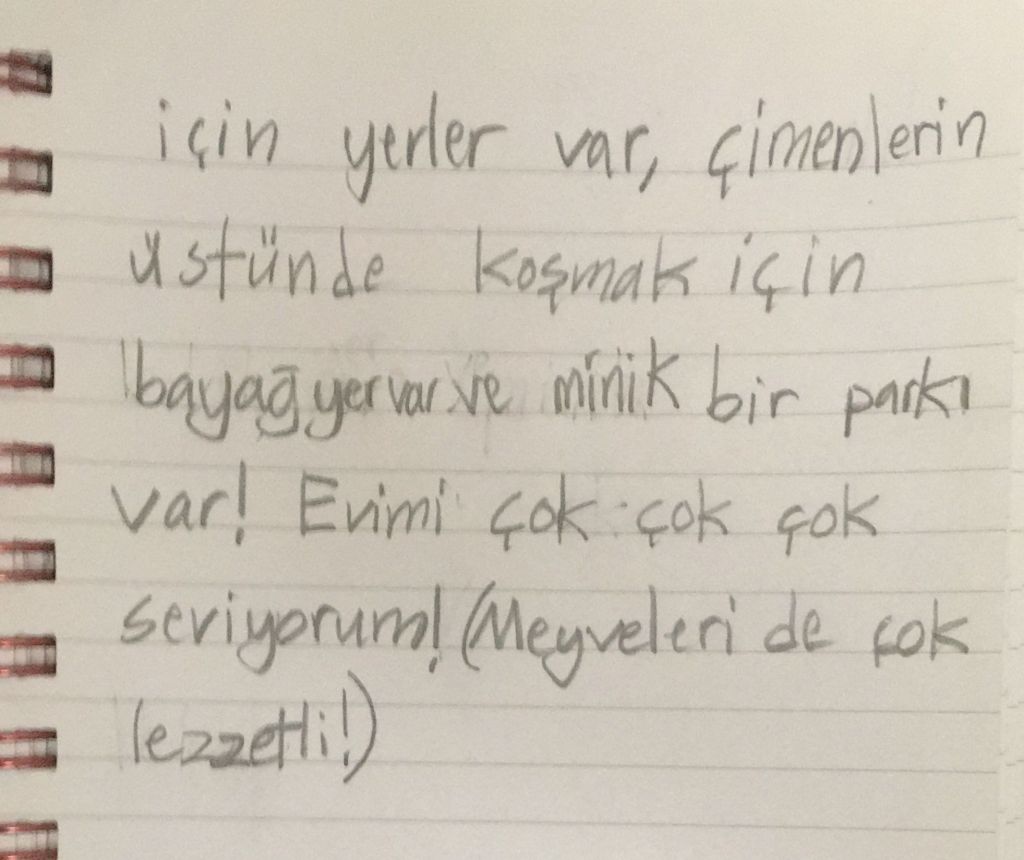 için yerler var, çimenlerin
üstünde koşmak için
bayağ yer var ve minik bir parkı
var! Evimi çok çok çok
seviyorum! (Meyveleri de çok
lezzetli!)